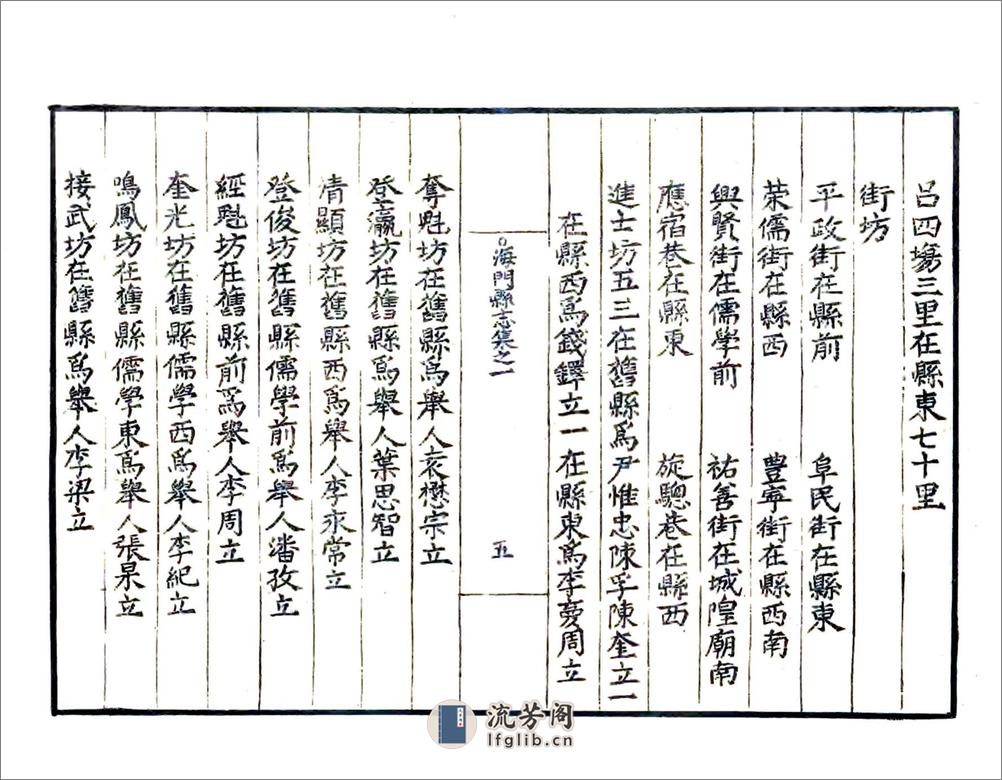 吕四塲三里在縣東七十里
街坊
平政街在縣前　阜民街在縣東
荣儒街在縣西　豊寧街在縣西南
興賢街在儒學前　祐善街在城隍廟南
應宿巷在縣東　旋驄巷在縣西
進士坊五三在舊縣爲尹惟忠陳孚陳奎立一
在縣西爲錢鐸立一在縣東爲李周立
海門縣志集之一
五
奪魁坊在舊縣爲舉人袁懋宗立
登瀛坊在舊縣爲舉人葉思智立
清顯坊在舊縣西爲舉人李永常立
登俊坊在舊縣儒學前爲舉人潘孜立
經魁坊在舊縣前爲舉人李周立
奎光坊在舊縣儒學西爲舉人李紀立
鳴鳳坊在舊縣儒學東爲舉人張杲立
接武坊在舊縣爲舉人李梁立
流芳阁
lfglib.cn